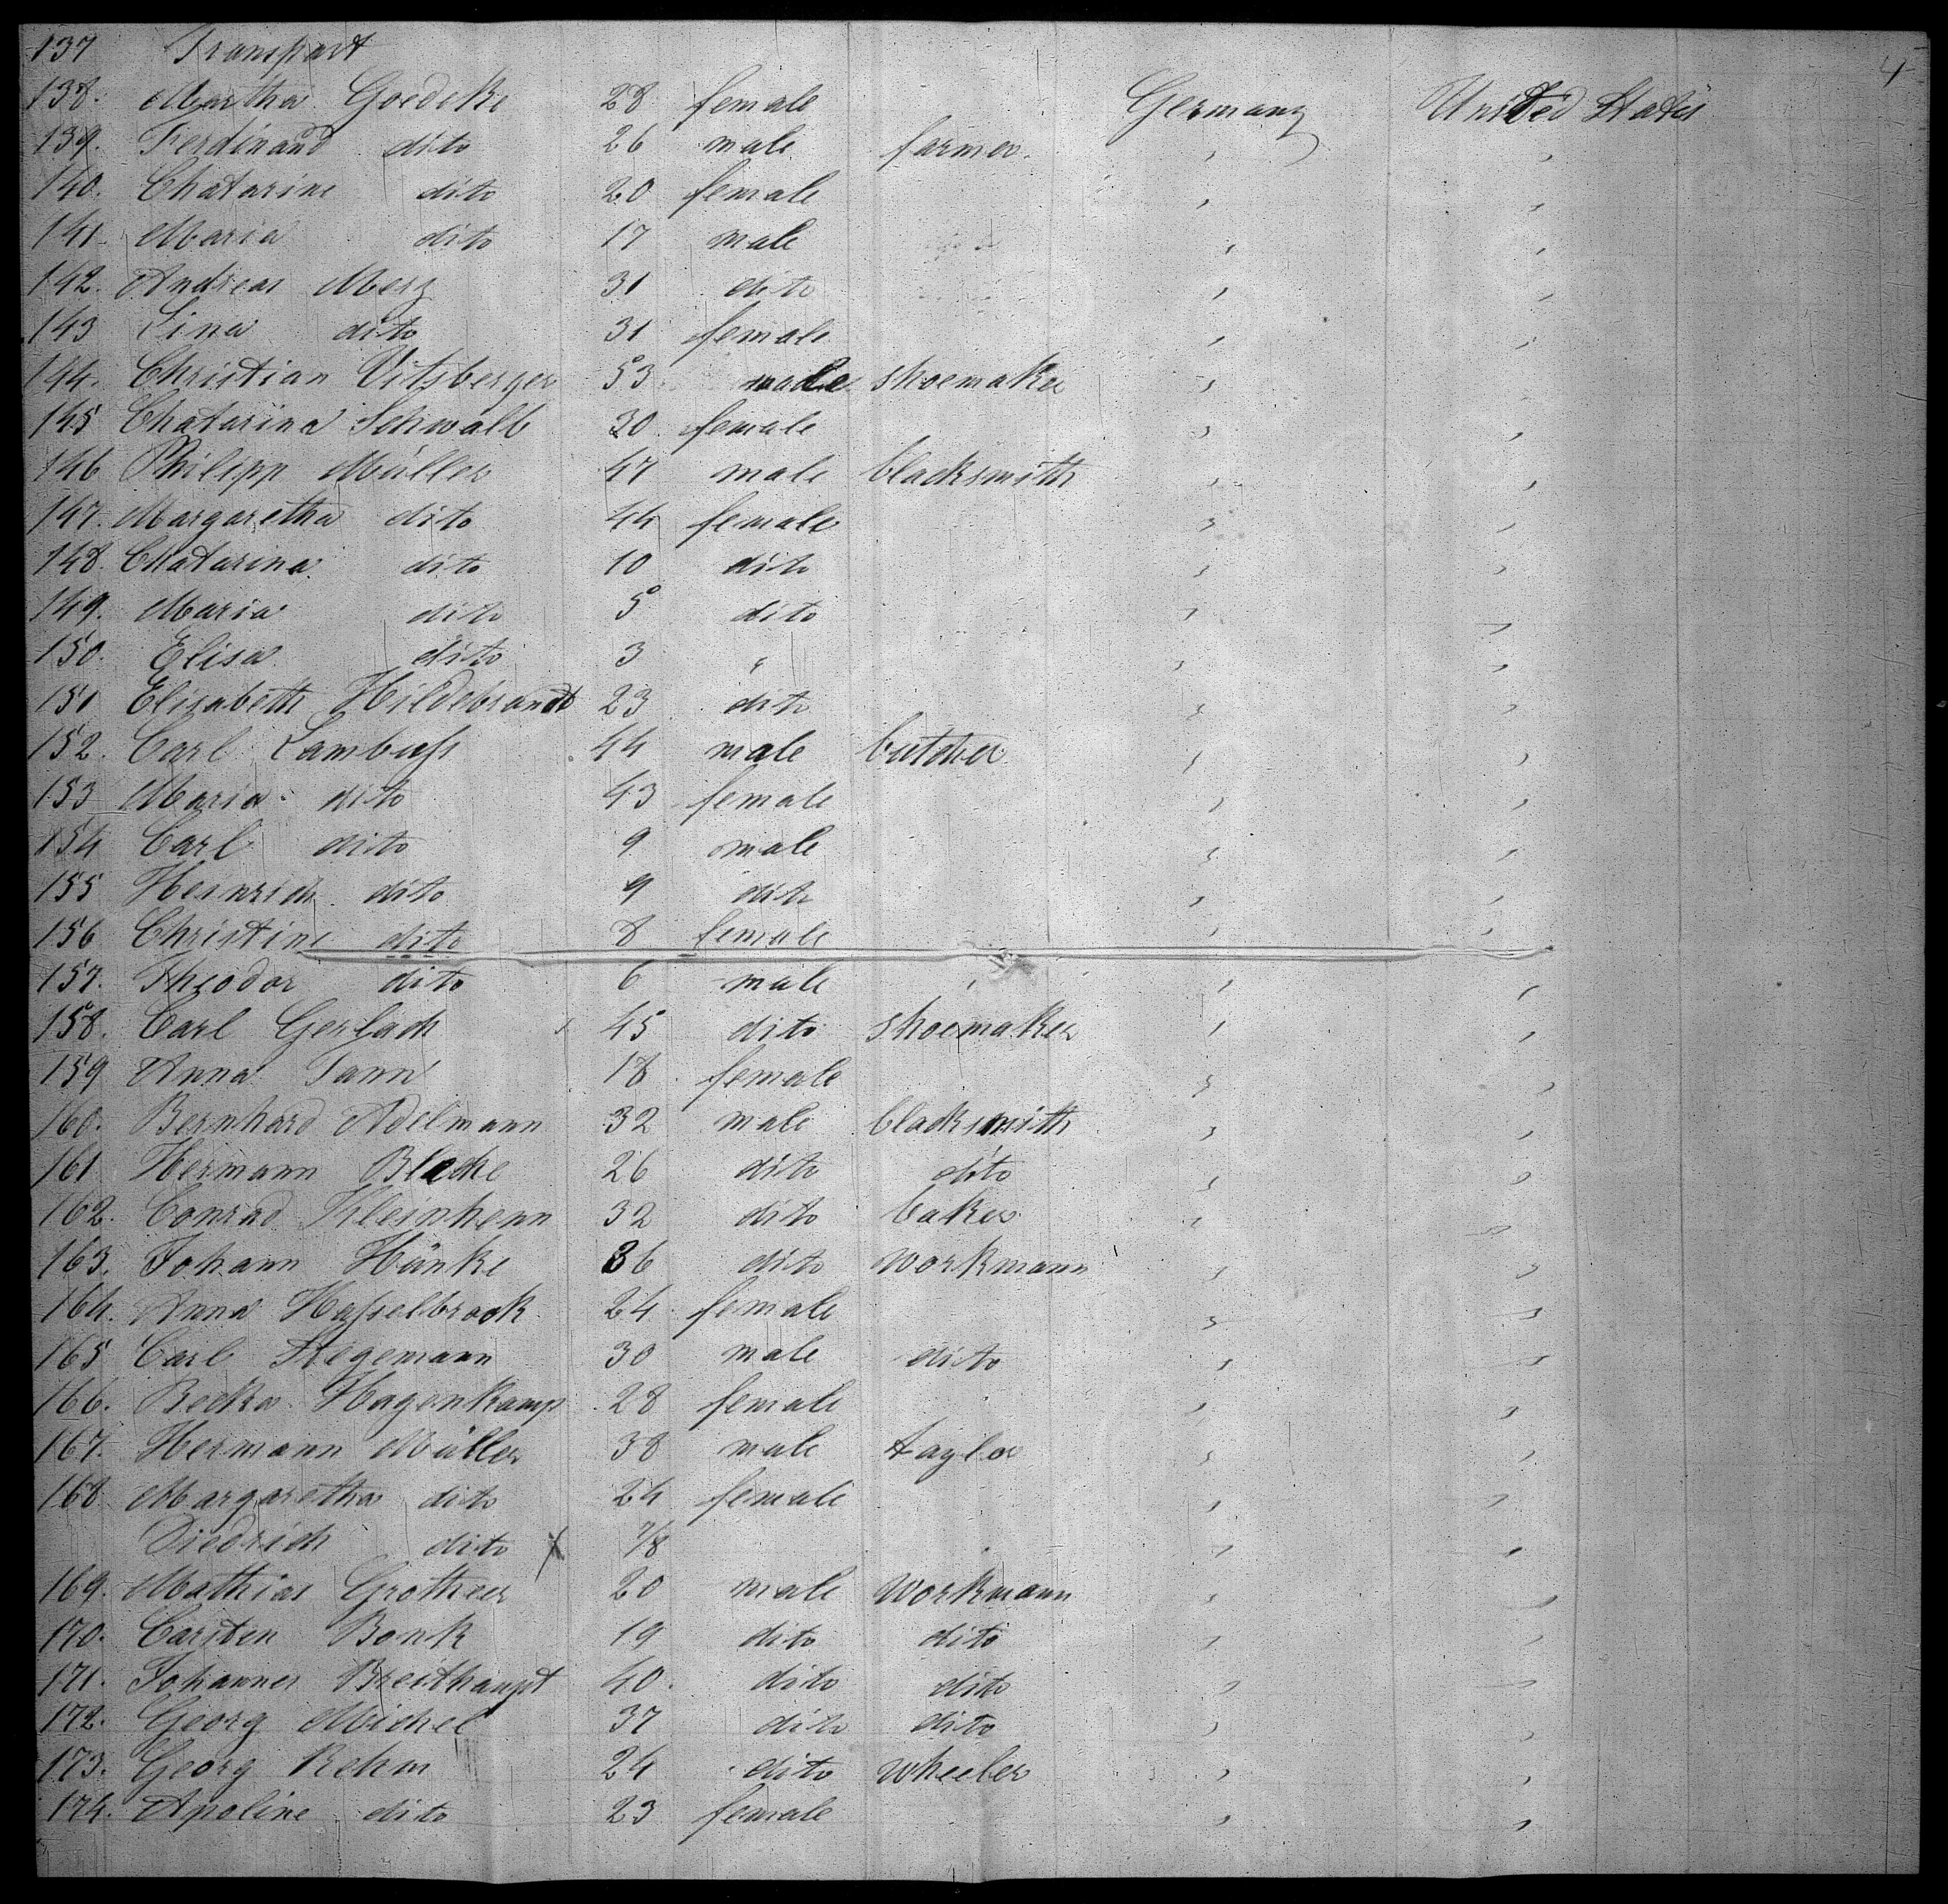 137 Transport 4
138. Martha Goedeke 28 female Germany United States
139. Ferdinand dito 26 male farmer. " "
140. Chatarine dito 20 female " "
141. Maria dito 17 male " "
142. Andreas Merz 31 dito " "
143 Lina dito 31 female " "
144. Christian Vitsberger 53 male shoemaker " "
145 Chatarina Schwalb 30 female " "
146 Philipp Müller 47 male blacksmith " "
147. Margaretha dito 44 female " "
148. Chatarina dito 10 dito " "
149. Maria dito 5 dito " "
150. Elisa dito 3 " " "
151 Elisabeth Hildebrandt 23 dito " "
152. Carl Lambuss 44 male butcher " "
153 Maria dito 43 female " "
154 Carl dito 9 male " "
155 Heinrich dito 9 dito " "
156 Christine dito 8 female " "
157. Theodor dito 6 male " " "
158. Carl Gerlach 45 dito shoemaker " "
159 Anna Tann 18 female " "
160. Bernhard Adelmann 32 male blacksmith " "
161 Hermann Blecke 26 dito dito " "
162. Conrad Kleinhenn 32 dito baker " "
163. Johann Hänke 36 dito workmann " "
164. Anna Hasselbrock 24 female " "
165 Carl Stegemann 30 male dito " "
166. Becka Hagenkamp 28 female " "
167. Hermann Müller 38 male taylor " "
168 Margaretha dito 24 female " "
Diedrich dito x 7/8 " "
169. Mathias Grotheer 20 male workmann " "
170. Carsten Bonk 19 dito dito " "
171. Johannes Breithaupt 40. dito dito " "
172. Georg Michel 37 dito dito " "
173. Georg Rehm 24 dito wheeler " "
174. Apoline dito 23 female " "